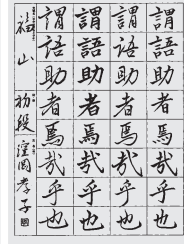 謂語助者焉哉乎也
謂語助者焉哉乎也
謂語助者焉哉乎也
謂語助者焉哉乎也
福山 初段 窪園孝子